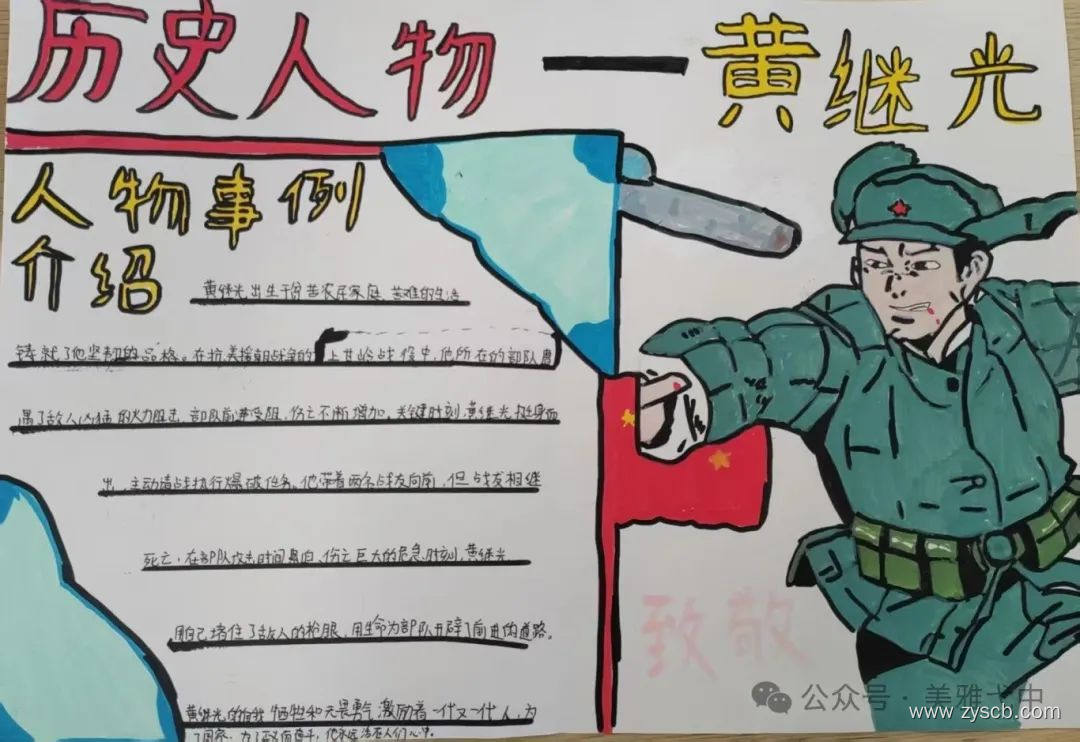 历史人物——黄继光
人物事例
介绍
黄继光出生于贫苦农民家庭、苦难的生活
铸就了他坚韧的品格。在抗美援朝战争的上甘岭战役中,他所在的部队遭
遇了敌人凶猛的火力阻击,部队前进受阻,伤亡不断增加。关键时刻,黄继光挺身而
出,主动请战执行爆破任务。他带着两名战友向前,但战友相继
死亡,在部队攻击时间 伤亡巨大的危急时刻,黄继光
用自己堵住了敌人的枪眼,用生命为部队开辟了前进的道路。
黄继光的自我牺牲和无畏勇气激励着一代又一代人,为
了国家,为了 他永远活在人们心中。
致敬
公众号·美雅弋中
www.zyscb.com